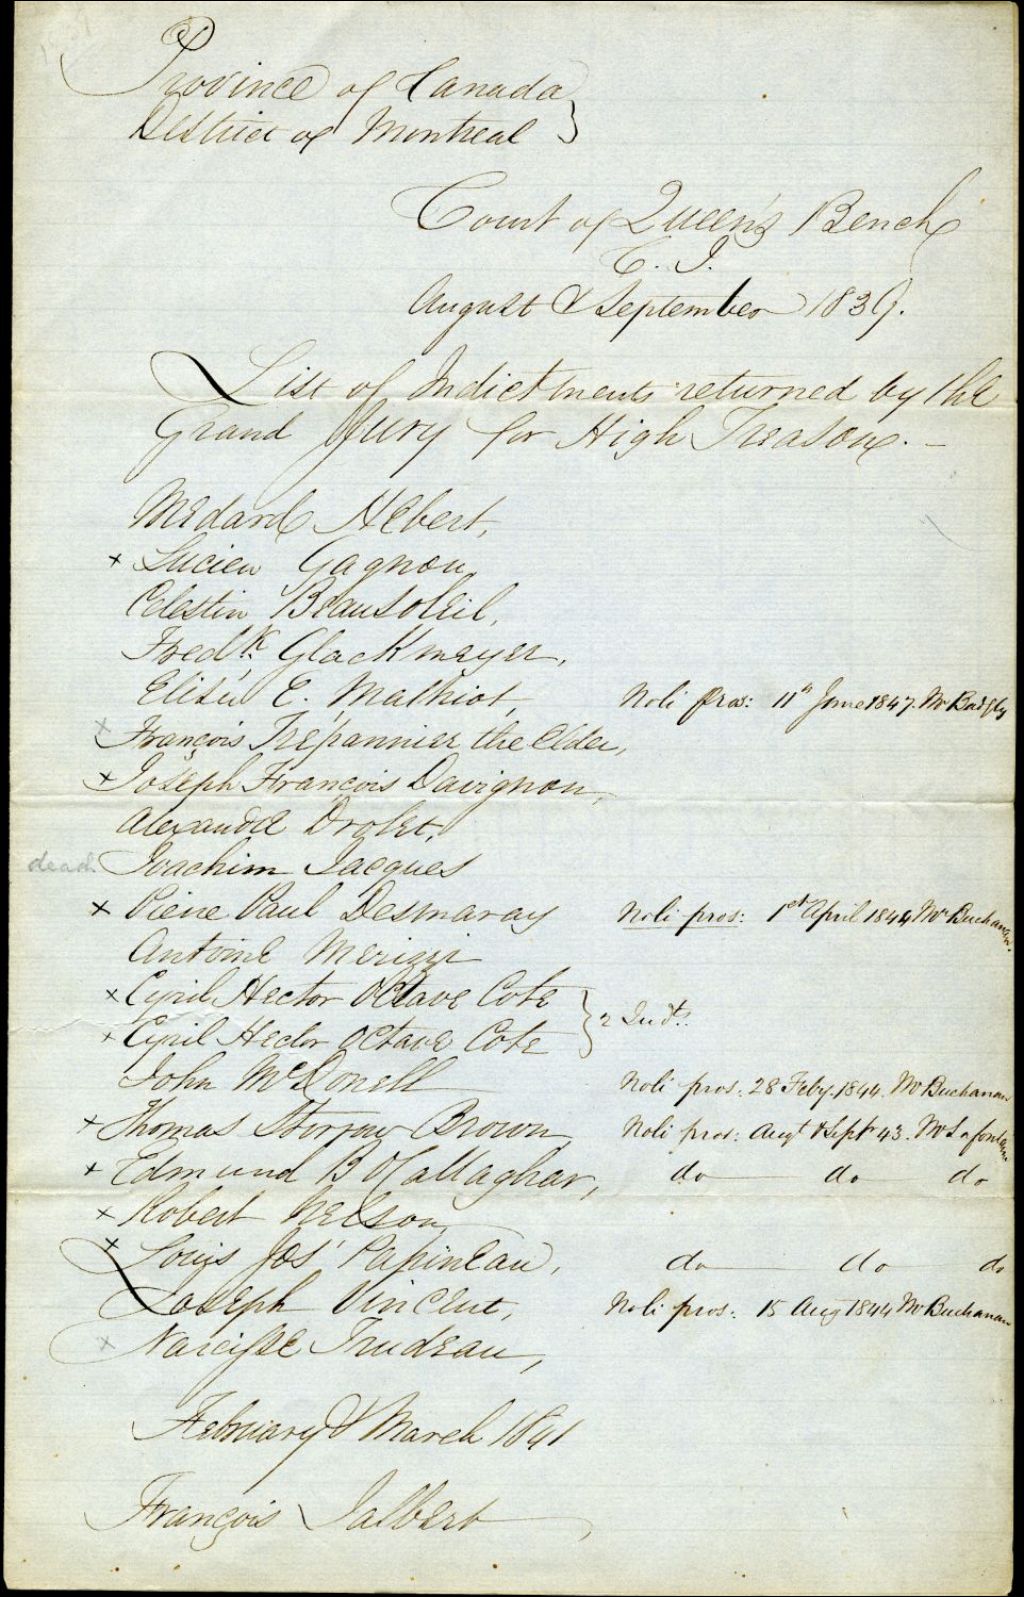 Province of Canada }
District of Montreal
Court of Queen's Bench
C. J.
August & September 1839.
List of Indictments returned by the
Grand Jury for High Treason. –
Medard Hebert,
x Lucien Gagnon,
Celestin Beausoleil,
Fredk. Glackmeyer,
Elisée E. Malhiot, Noli pros: 11th June 1847. Mr Badgley
x François Trépannier the Elder,
x Joseph François Davignon,
Alexandre Drolet,
dead. Joachim Jacques
x Pierre Paul Desmaray Noli pros: 1st April 1844 Mr Buchanan.
Antoine Merizzi
x Cyril Hector Octave Cote } 2 Indts.
x Cyril Hector Octave Cote
John McDonell Noli pros: 28 Feby. 1844. Mr Buchanan
x Thomas Storrow Brown Noli pros: Augt & Sept 43. Mr Lafontaine
x Edmund B O'Callaghan, do do do
x Robert Nelson
x Louis Jos' Papineau, do do do
Joseph Vincent, Noli pros: 15 Aug 1844 Mr Buchanan
x Narcisse Trudeau,
February & March 1841
François Jalbert,